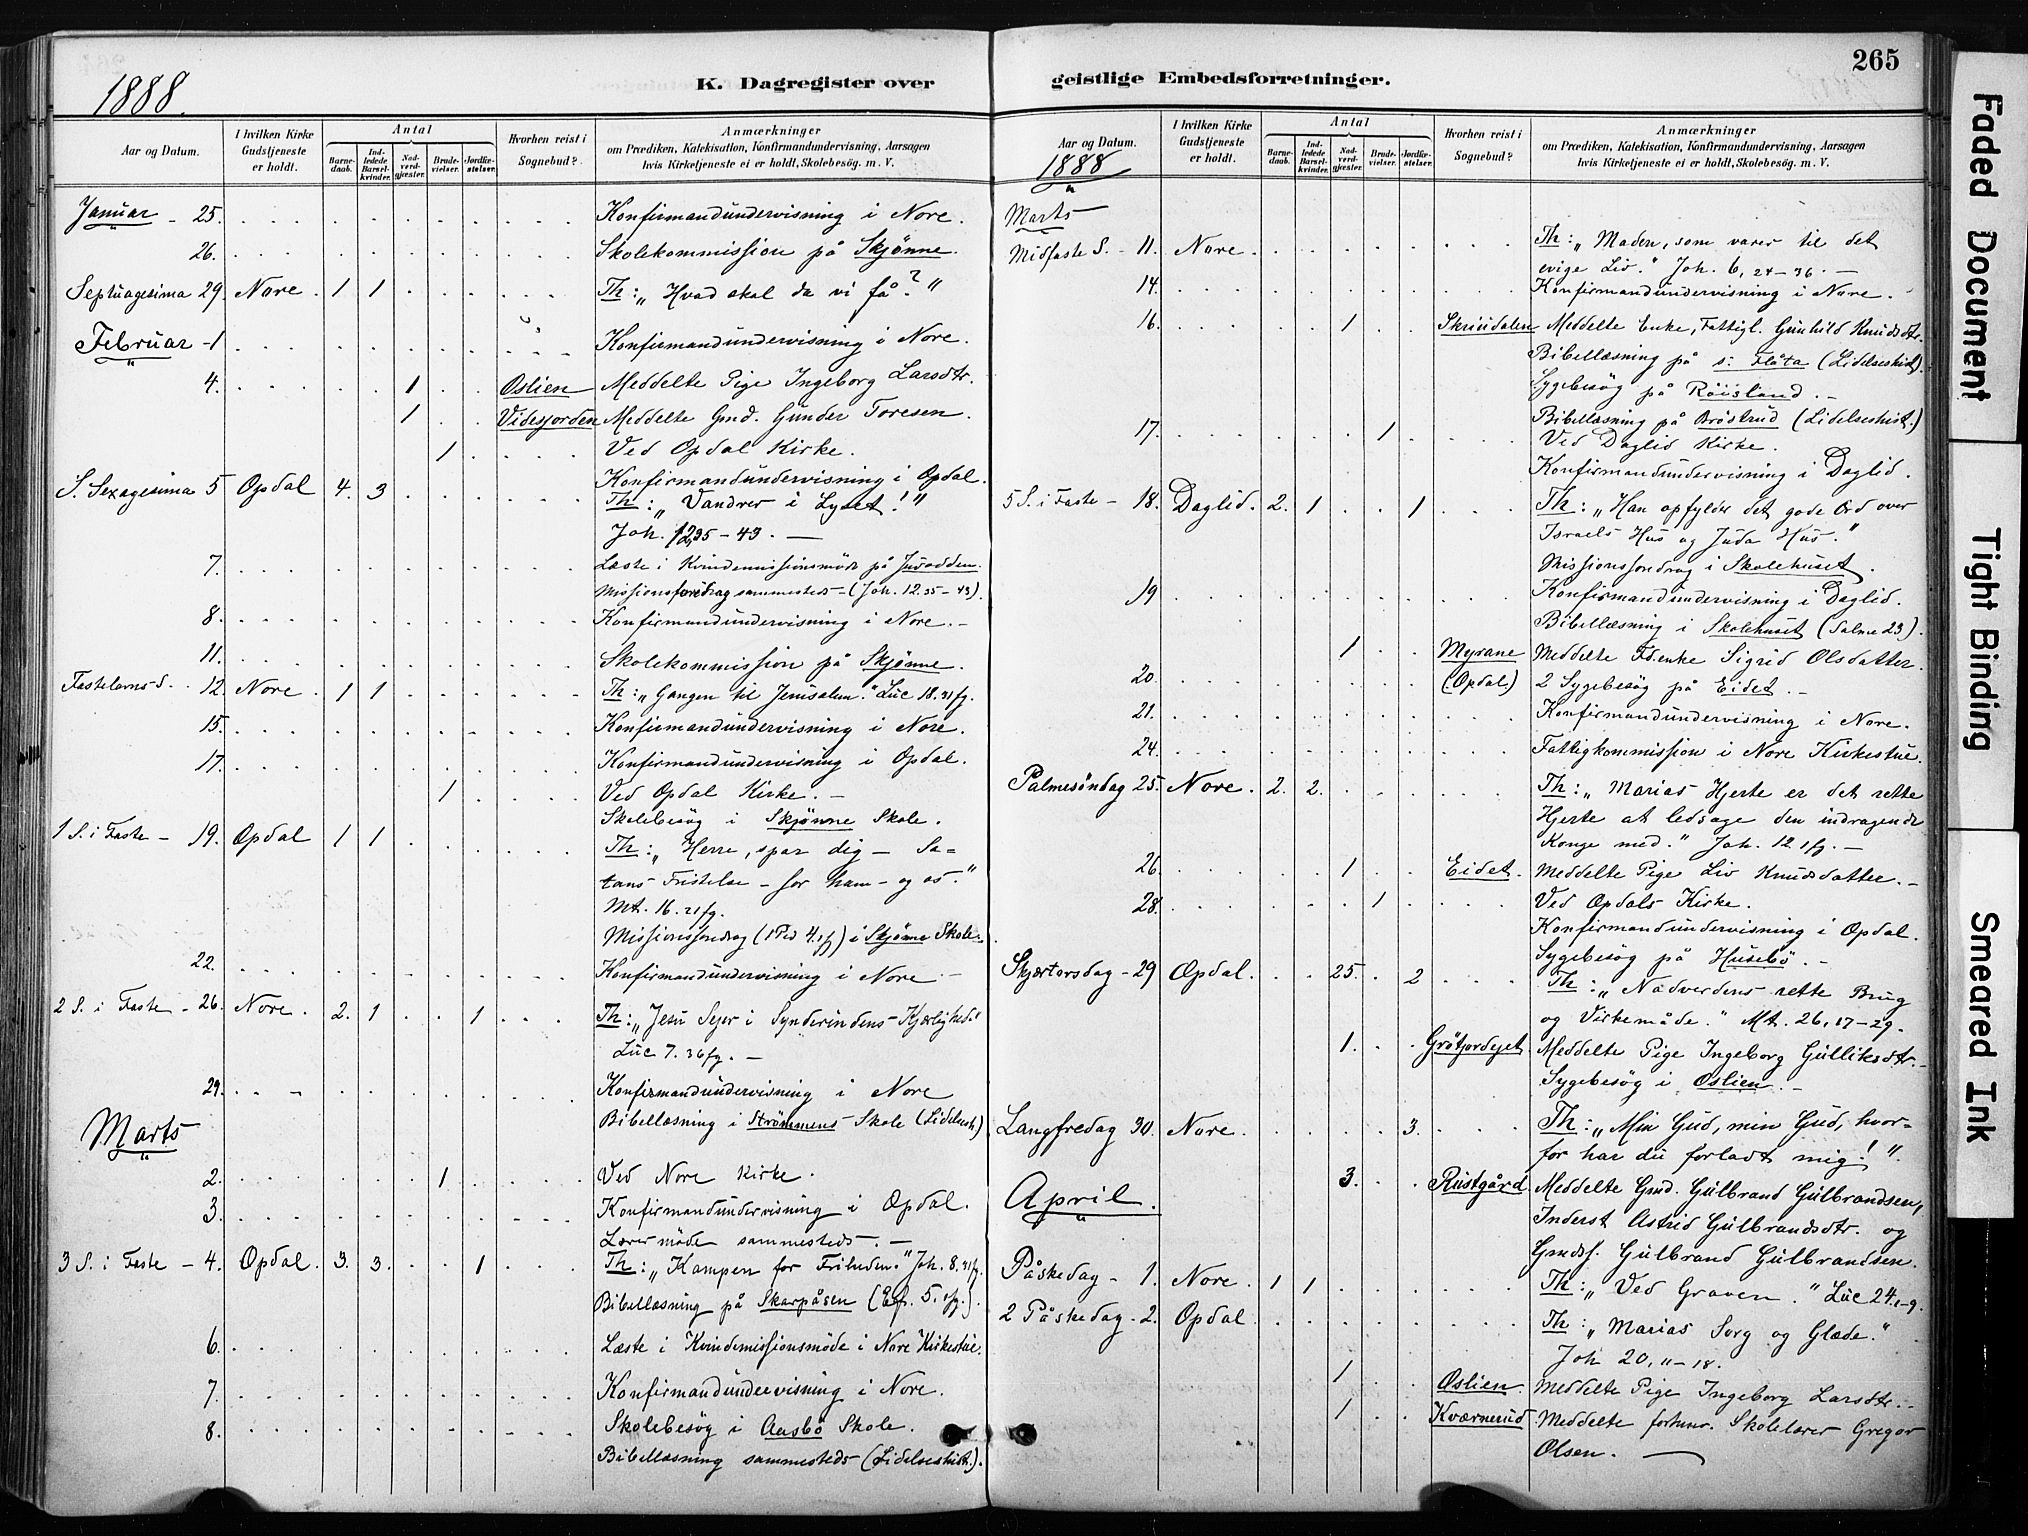 1888.
K. Dagregister over
Aar og Datum.
I hvilken Kirke Gudstjeneste er holdt.
Antal
Barne-daab.
Ind-ledede Barsel-kvinder.
Nad-verd-gjæster.
Brude-vielser.
Jordfæ-stelser.
Hvorhen reist i Sognebud?
Anmærkninger
om Prædiken, Katekisation, Konfirmandundervisning, Aarsagen
hvis Kirketjeneste ei er holdt, Skolebesøg. m. V.
Januar - 25. Konfirmandundervisning i Nore.
26. Skolekommission på Skjønne.
Septuagesima 29 Nore. 1 1 Th: „Hvad skal da vi få?"
Februar - 1 Konfirmandundervisning i Nore.
4. 1 Oslien Meddelte Pige Ingeborg Larsdtr.
1 Videsjorden Meddelte Gmd. Gunder Toresen.
1 Ved Opdal Kirke.
Konfirmandundervisning i Opdal.
S. Sexagesima 5 Opdal 4. 3 Th: „Vandrer i Lyset!"
Joh. 12,35-43. —
7. Læste i Kvindemissionsmøde på Juvodden.
Missionsforedrag sammesteds - (Joh. 12.35-43).
8. Konfirmandundervisning i Nore. -
11. Skolekommission på Skjønne.
Fastelavns S. 12. Nore. 1 1 Th: „Gangen til Jerusalem." Luc 18.31fg.
15. Konfirmandundervisning i Nore.
17. Konfirmandundervisning i Opdal.
1 Ved Opdal Kirke. -
Skolebesøg i Skjønne Skole.
1 S. i Faste - 19. Opdal 1 1 Th: „Herre, spar dig - Sa-
tans Fristelse - for ham - og os."
Mt. 16.21fg.
Missionsforedrag (1 Pet 4.1f) i Skjønne Skole.
22. Konfirmandundervisning i Nore -
2 S. i Faste - 26. Nore. 2. 1 1 Th: „Jesu Sejer i Synderindens Kjærlighed."
Luc 7.36fg. -
29. Konfirmandundervisning i Nore
Bibellæsning i Strømmens Skole (Lidelsesh.)
Marts
2. 1 Ved Nore Kirke.
3. Konfirmandundervisning i Opdal.
Lærermøde sammesteds. -
3 S. i Faste - 4. Opdal. 3. 3. 1 Th: „Kampen for Friheden." Joh. 8.31fg.
Bibellæsning på Skarpåsen (Ef. 5.1fg.).
6. Læste i Kvindemissionsmøde i Nore Kirkestue.
7. Konfirmandundervisning i Nore.
8. Skolebesøg i Aasbø Skole.
Bibellæsning sammesteds (Lidelseshist.).
265
geistlige Embedsforretninger.
Aar og Datum.
1888
I hvilken Kirke Gudstjeneste er holdt.
Antal
Barne-daab.
Ind-ledede Barsel-kvinder.
Nad-verd-gjæster.
Brude-vielser.
Jordfæ-stelser.
Hvorhen reist i Sognebud?
Anmærkninger
om Prædiken, Katekisation, Konfirmandundervisning, Aarsagen
hvis Kirketjeneste ei er holdt, Skolebesøg. m. V.
Marts
Midfaste S. - 11. Nore. Th: „Maden, som varer til det
evige Liv." Joh. 6, 24-36. -
14. Konfirmandundervisning i Nore.
16. 1 Skrindalen Meddelte Enke, Fattigl. Gunhild Knudsdtr.
Bibellæsning på s: Flåta (Lidelseshist).
Sygebesøg på Røisland. -
Bibellæsning på Brøstrud (Lidelseshist.)
17. 1 Ved Daglid Kirke.
Konfirmandundervisning i Daglid.
5 S. i Faste - 18. Daglid. 2. 1 1 Th: „Han opfylder det gode Ord over
Israels Hus og Juda Hus."
Missionsforedrag i Skolehuset.
19 Konfirmandundervisning i Daglid.
Bibellæsning i Skolehuset (Salme 23).
1 Myrane Meddelte Fdenke Sigrid Olsdatter.
20. (Opdal.) 2 Sygebesøg på Eidet. -
21. Konfirmandundervisning i Nore.
24. Fattigkommission i Nore Kirkestue.
Palmesøndag 25. Nore. 2. 2. Th: „Marias Hjerte er det rette
Hjerte at ledsage den indragende
Konge med." Joh. 12 1fg. -
26. 1 Eidet. Meddelte Pige Liv Knudsdatter. -
28. 1 Ved Opdals Kirke.
Konfirmandundervisning i Opdal.
Sygebesøg på Husebø. -
Skjærtorsdag - 29 Opdal. 25. 2 Th: „Nadverdens rette Brug
og Virkemåde." Mt. 26, 17-29.
1. Grøtjordejet. Meddelte Pige Ingeborg Gulliksdtr. -
Sygebesøg i Oslien. -
Langfredag 30. Nore. 3. Th: „Min Gud, min Gud, hvor-
for har du forladt mig!".
3. Rustgård. Meddelte Gmd. Gulbrand Gulbrandsen,
April. Inderst Astrid Gulbrandsdtr. og
Gmdsf. Gulbrand Gulbrandsen.
Påskedag - 1. Nore. 1 1 Th: „Ved Graven." Luc 24.1-9.
2 Påskedag - 2. Opdal Th: „Marias Sorg og Glæde."
Joh 20, 11-18.
1 Oslien. Meddelte Pige Ingeborg Larsdtr. -
1 Kværnerud. Meddelte forhenv. Skolelærer Gregor
Olsen. —
Faded Document
Tight Binding
Smeared Ink